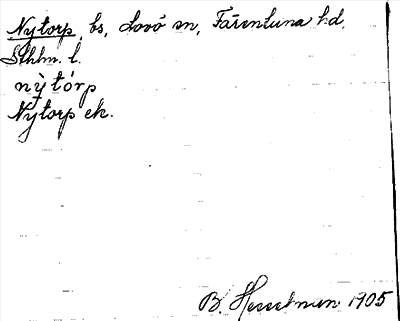 Nytorp, bs, Lovö sn, Färentuna hd,
Sthlm. l.
nỳtórp
Nytorp ek.
B. Hesselman 1905